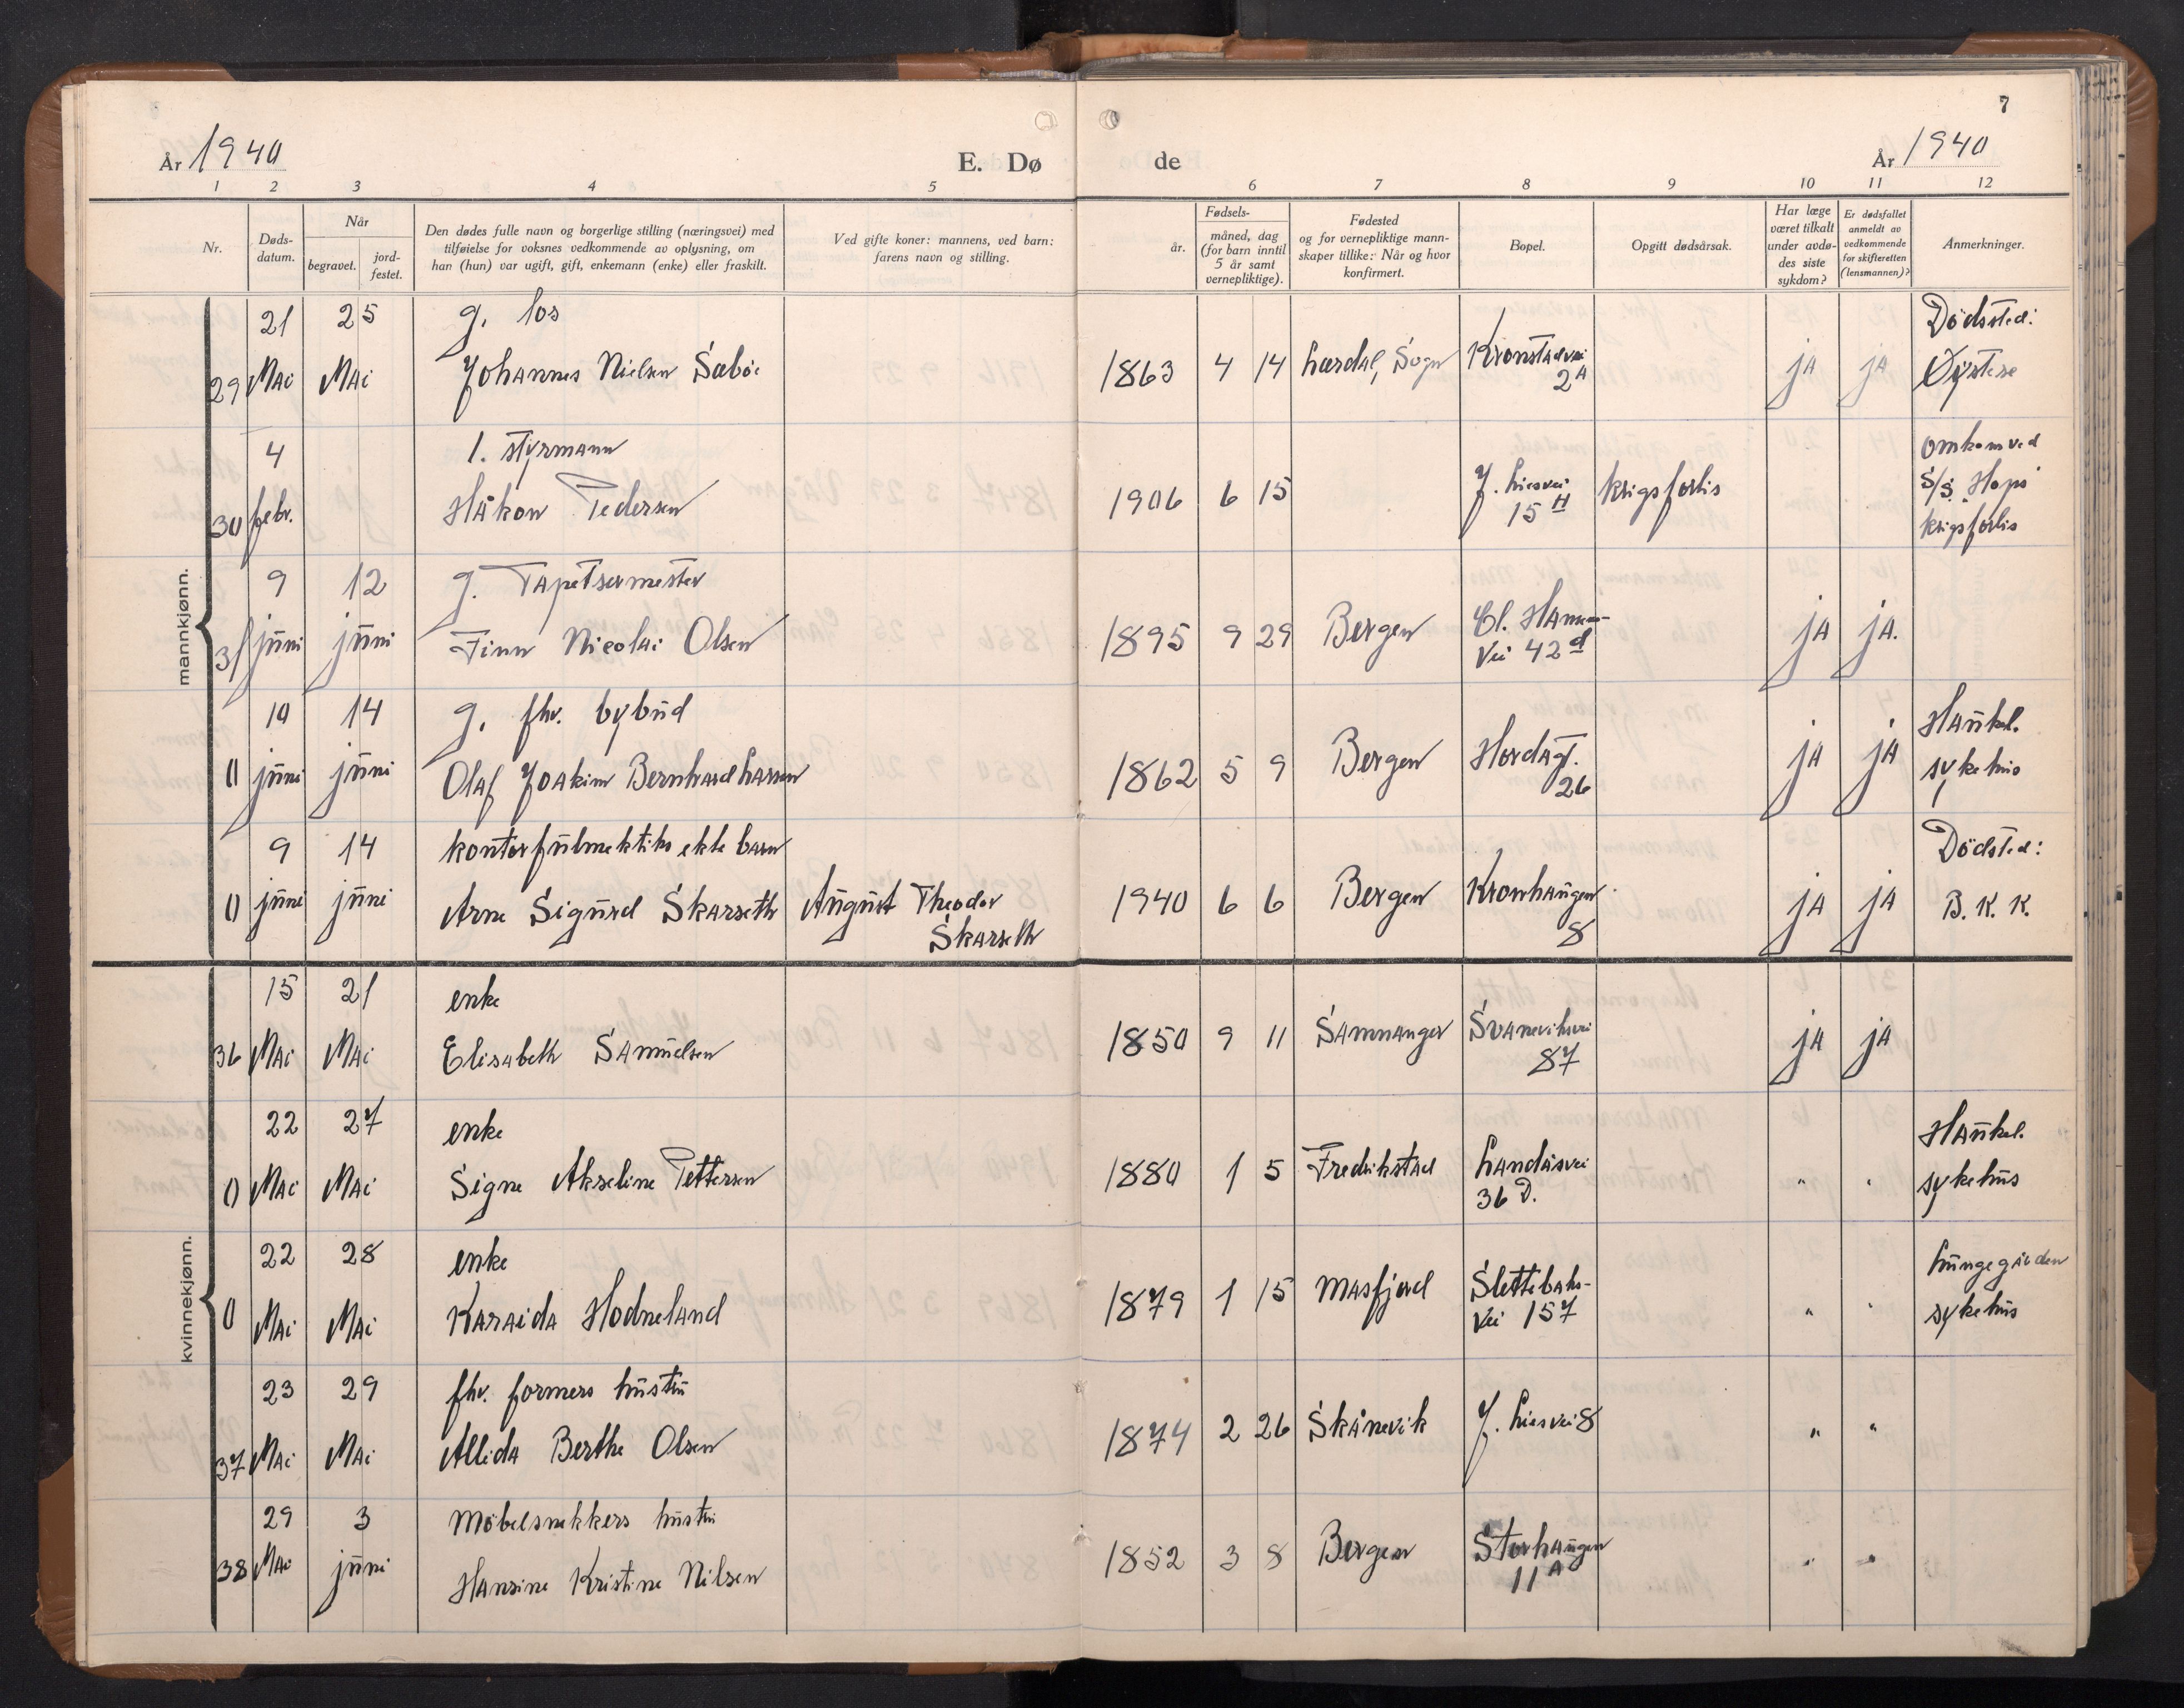 7
År 1940
E. Dø de
År 1940
1 2 3 4 5 6 7 8 9 10 11 12
Nr.
Døds-
datum.
Når
begravet.
jord-
festet.
Den dødes fulle navn og borgerlige stilling (næringsvei) med
tilføielse for voksnes vedkommende av oplysning, om
han (hun) var ugift, gift, enkemann (enke) eller fraskilt.
Ved gifte koner: mannens, ved barn:
farens navn og stilling.
år.
Fødsels-
måned, dag
(for barn inntil
5 år samt
vernepliktige).
Fødested
og for vernepliktige mann-
skaper tillike: Når og hvor
konfirmert.
Bopel.
Opgitt dødsårsak.
Har læge
været tilkalt
under avdø-
des siste
sykdom?
Er dødsfallet
anmeldt av
vedkommende
for skifteretten
(lensmannen)?
Anmerkninger.
mannkjønn.
21 25 g. los Dödssted:
29 Mai Mai Johannes Nielsen Sæböe 1863 4 14 Lærdal, Sogn Kronstadvei ja ja Øystese
2A
4 1. styrmann omkom ved
30 febr. Håkon Pedersen 1906 6 15 J. Liesvei krigsforlis S/S. Hop i
15 H krigsforlis
9 12 g. Tapetsermester
31 juni juni Finn Nicolai Olsen 1895 9 29 Bergen Cl. Hansen-
Vei 42 d ja ja.
10 14 g. fhv. bybud Haukel.
0 juni juni Olaf Joakim Bernhard Larsen 1862 5 9 Bergen Hordagt. ja ja sykehus
26
9 14 kontorfulmektiks ekte barn Dödsted:
0 juni juni Arne Sigurd Skarseth August Theodor 1940 6 6 Bergen Kronhaugen ja ja B. K. K.
Skarseth 8
kvinnekjønn.
15 21 enke
36 Mai Mai Elisabeth Samuelsen 1850 9 11 Samnanger Svaneviksvei ja ja
87
22 27 enke Haukel.
0 Mai Mai Signe Akseline Pettersen 1880 1 5 Fredrikstad Landåsvei " " sykehus
36 D.
22 28 enke Lungegården
0 Mai Mai Karaida Hodneland 1879 1 15 Masfjord Slettebaks- " " sykehus
Vei 157
23 29 fhv. formers hustru
37 Mai Mai Allida Berthe Olsen 1874 2 26 Skånevik J. Liesvei 8 " "
29 3 Möbelsnekkers hustru
38 Mai juni Hansine Kristine Nilsen 1852 3 8 Bergen Storhaugen " "
11 A